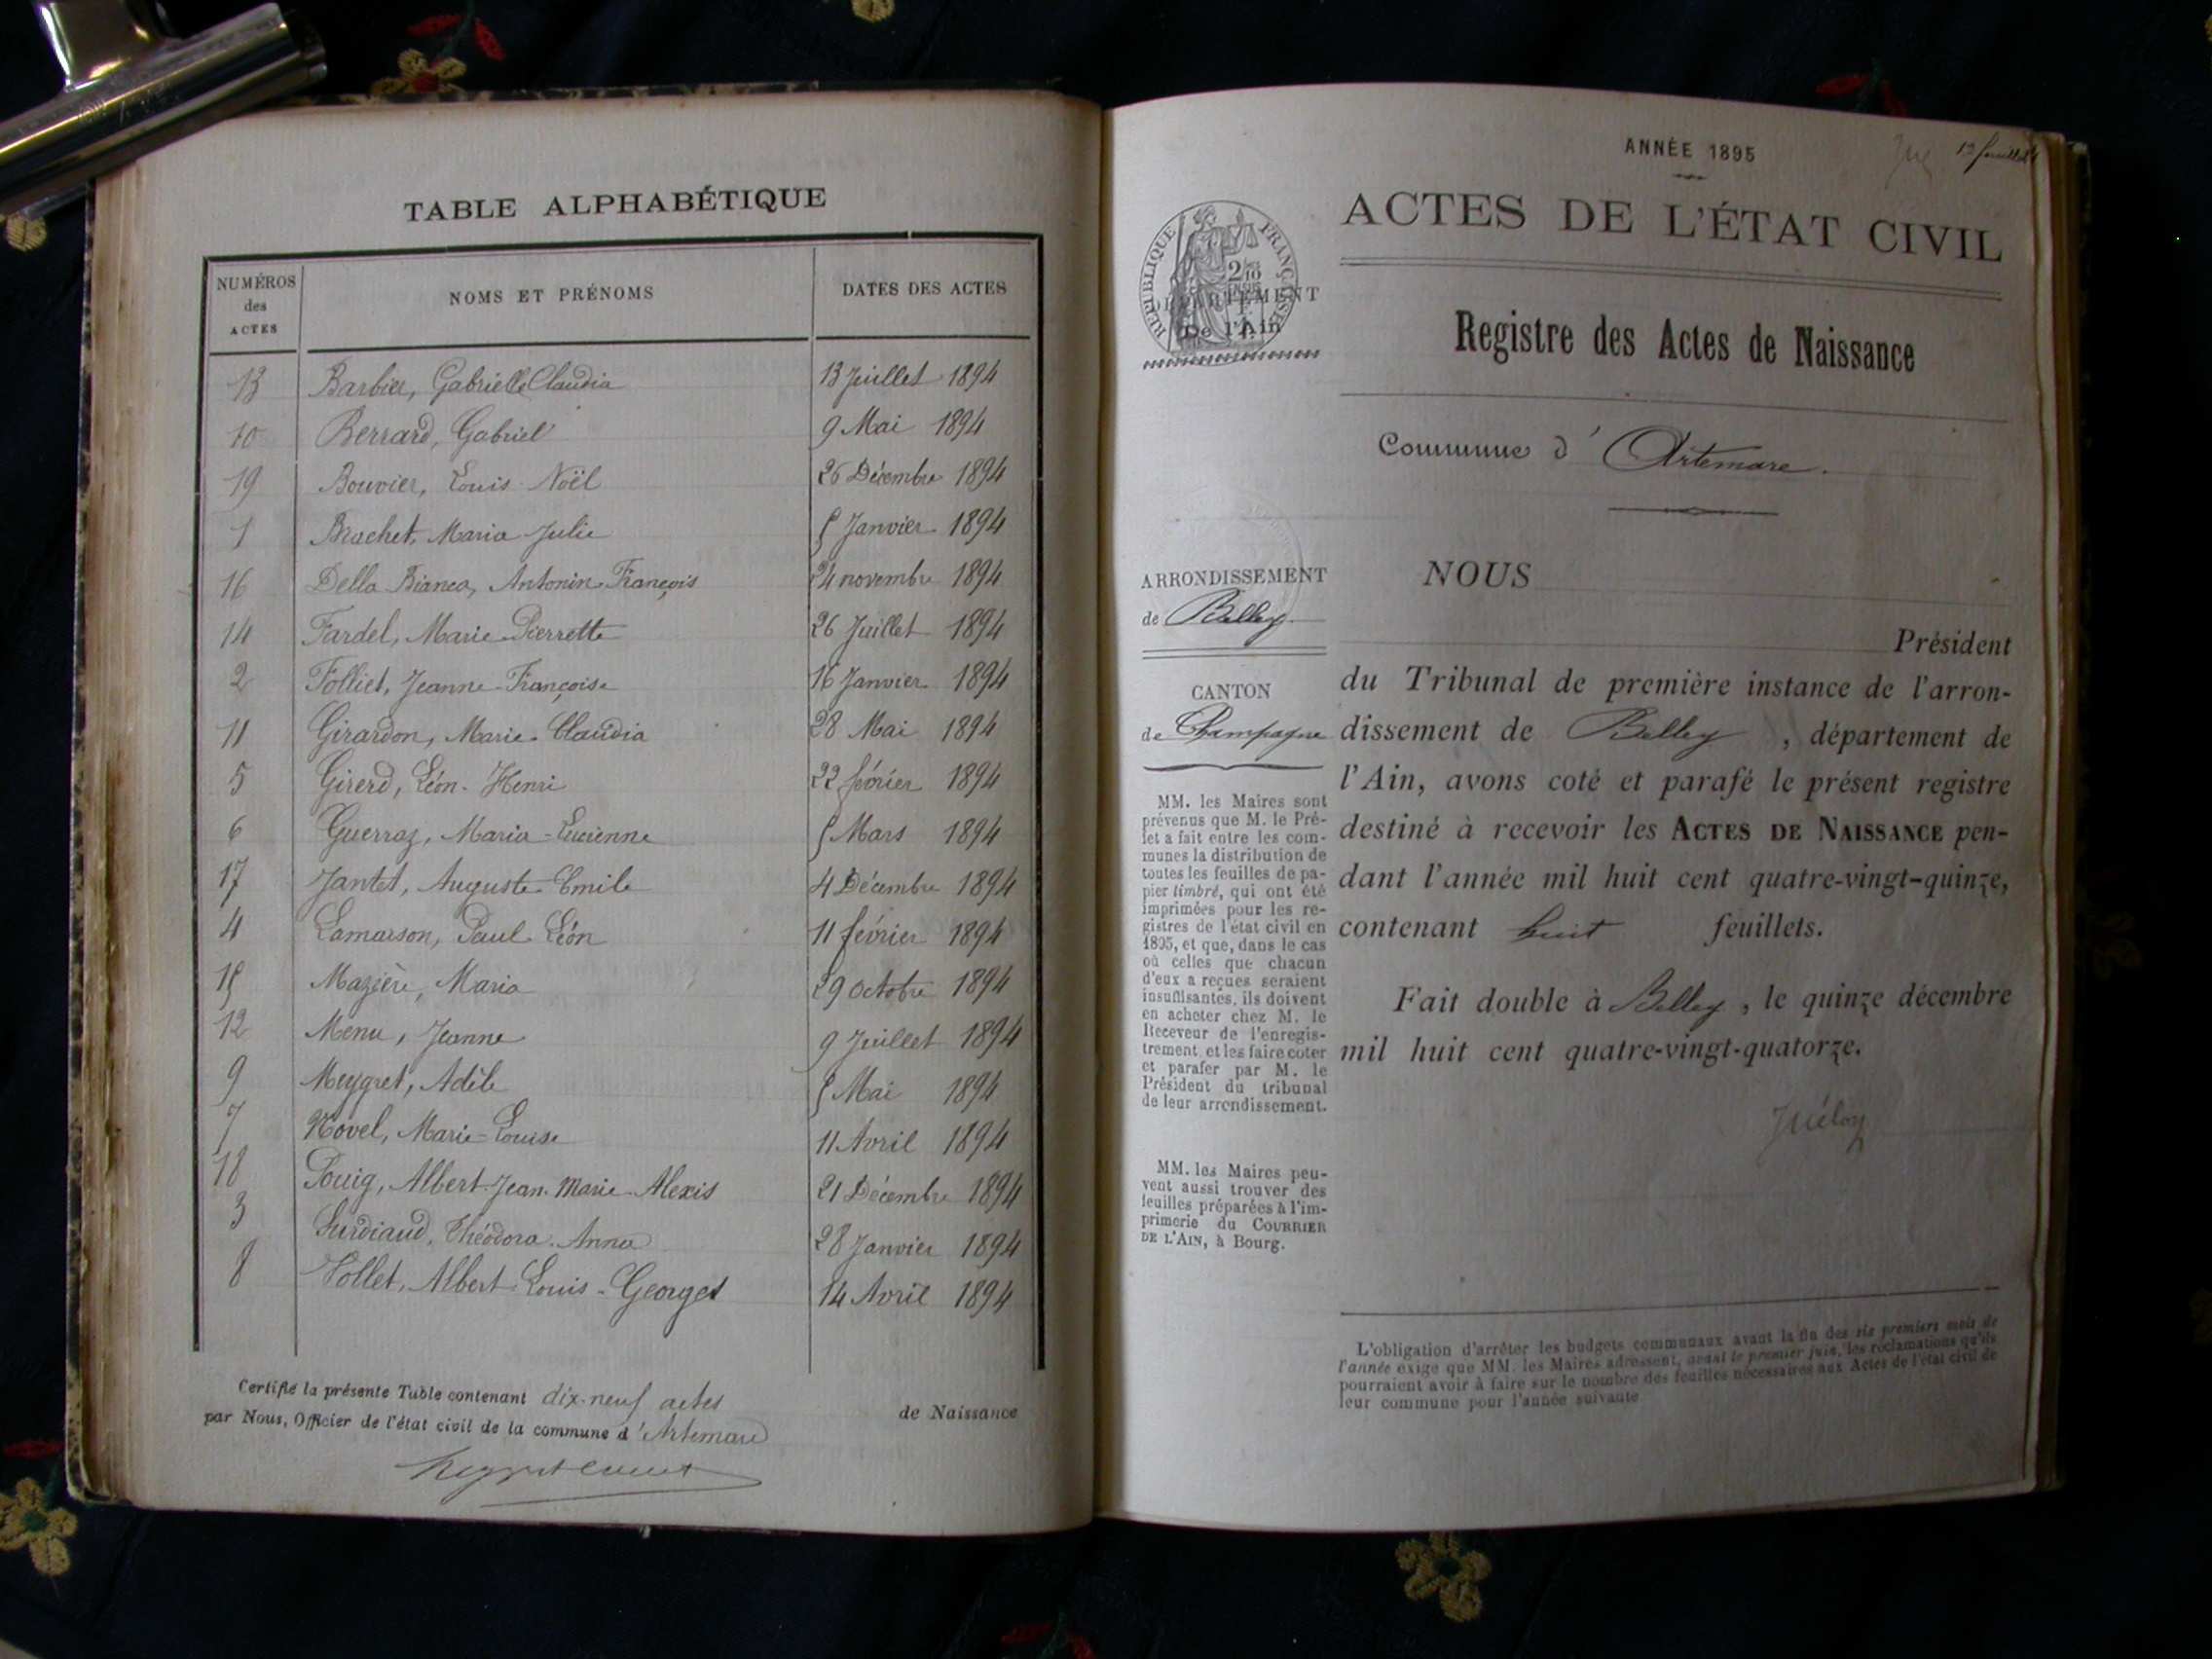 TABLE ALPHABÉTIQUE
NUMÉROS des ACTES NOMS ET PRÉNOMS DATES DES ACTES
13 Barbier, Gabrielle Claudia 13 Juillet 1894
10 Berrard, Gabriel 9 Mai 1894
19 Bouvier, Louis Noël 26 Décembre 1894
1 Brachet, Maria Julie 5 Janvier 1894
16 Della Bianca, Antonin François 24 novembre 1894
14 Fardel, Marie Pierrette 26 Juillet 1894
2 Folliet, Jeanne-Françoise 16 Janvier 1894
11 Girardon, Marie-Claudia 28 Mai 1894
5 Girerd, Léon-Henri 22 février 1894
6 Guerraz, Maria-Lucienne 5 Mars 1894
17 Jantet, Auguste-Emile 4 Décembre 1894
4 Lamarson, Paul Léon 11 février 1894
15 Mazière, Maria 29 Octobre 1894
12 Menu, Jeanne 9 Juillet 1894
9 Meygret, Adèle 5 Mai 1894
7 Novel, Marie-Louise 11 Avril 1894
18 Puig, Albert-Jean-Marie-Alexis 21 Décembre 1894
3 Surdiaud, Théodora-Anna 28 Janvier 1894
8 Vollet, Albert-Louis-Georges 14 Avril 1894
Certifié la présente Table contenant dix-neuf actes de Naissance
par Nous, Officier de l'état civil de la commune d'Artemare
ANNÉE 1895
ACTES DE L'ÉTAT CIVIL
RÉPUBLIQUE FRANÇAISE
DÉPARTEMENT
De l'Ain
Registre des Actes de Naissance
Commune d'Artemare.
ARRONDISSEMENT
de Belley
CANTON
de Champagne
MM. les Maires sont
prévenus que M. le Pré-
fet a fait entre les com-
munes la distribution de
toutes les feuilles de pa-
pier timbré, qui ont été
imprimées pour les re-
gistres de l'état civil en
1895, et que, dans le cas
où celles que chacun
d'eux a reçues seraient
insuffisantes, ils doivent
en acheter chez M. le
Receveur de l'enregis-
trement et les faire coter
et parafer par M. le
Président du tribunal
de leur arrondissement.
MM. les Maires peu-
vent aussi trouver des
feuilles préparées à l'im-
primerie du COURRIER
DE L'AIN, à Bourg.
NOUS
Président
du Tribunal de première instance de l'arron-
dissement de Belley, département de
l'Ain, avons coté et parafé le présent registre
destiné à recevoir les ACTES DE NAISSANCE pen-
dant l'année mil huit cent quatre-vingt-quinze,
contenant huit feuillets.
Fait double à Belley, le quinze décembre
mil huit cent quatre-vingt-quatorze.
L'obligation d'arrêter les budgets communaux avant la fin des six premiers mois de
l'année exige que MM. les Maires adressent, avant le premier juin, les réclamations qu'ils
pourraient avoir à faire sur le nombre des feuilles nécessaires aux Actes de l'état civil de
leur commune pour l'année suivante